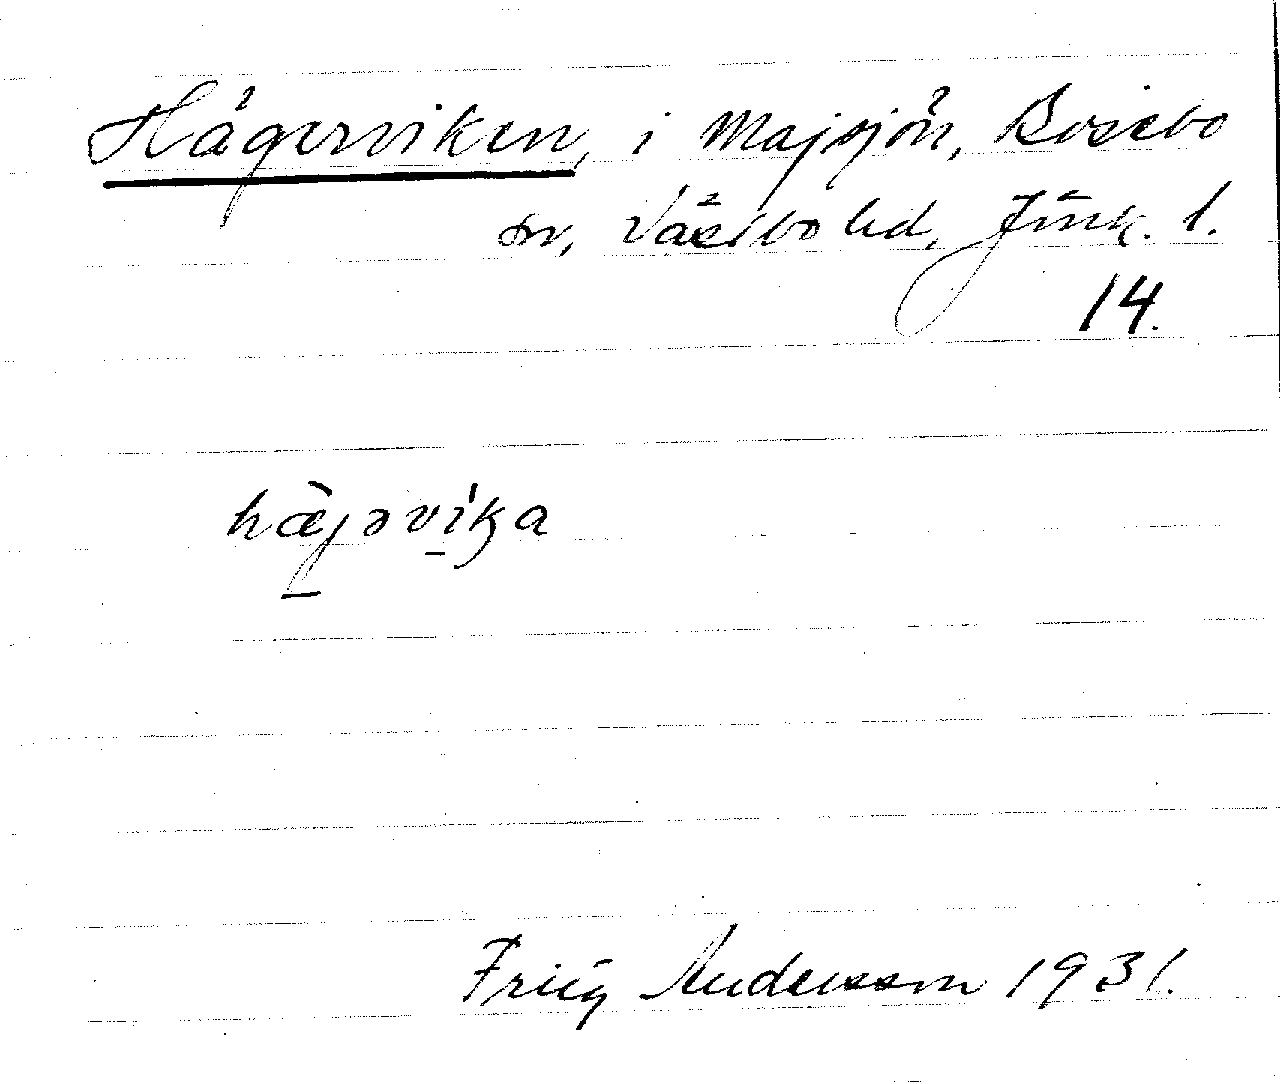 Hägerviken, i Majsjön, Bosebo
sn, Västbo hd, Jönk. l.
14.
hæjəvika
Frig Andersson 1931.